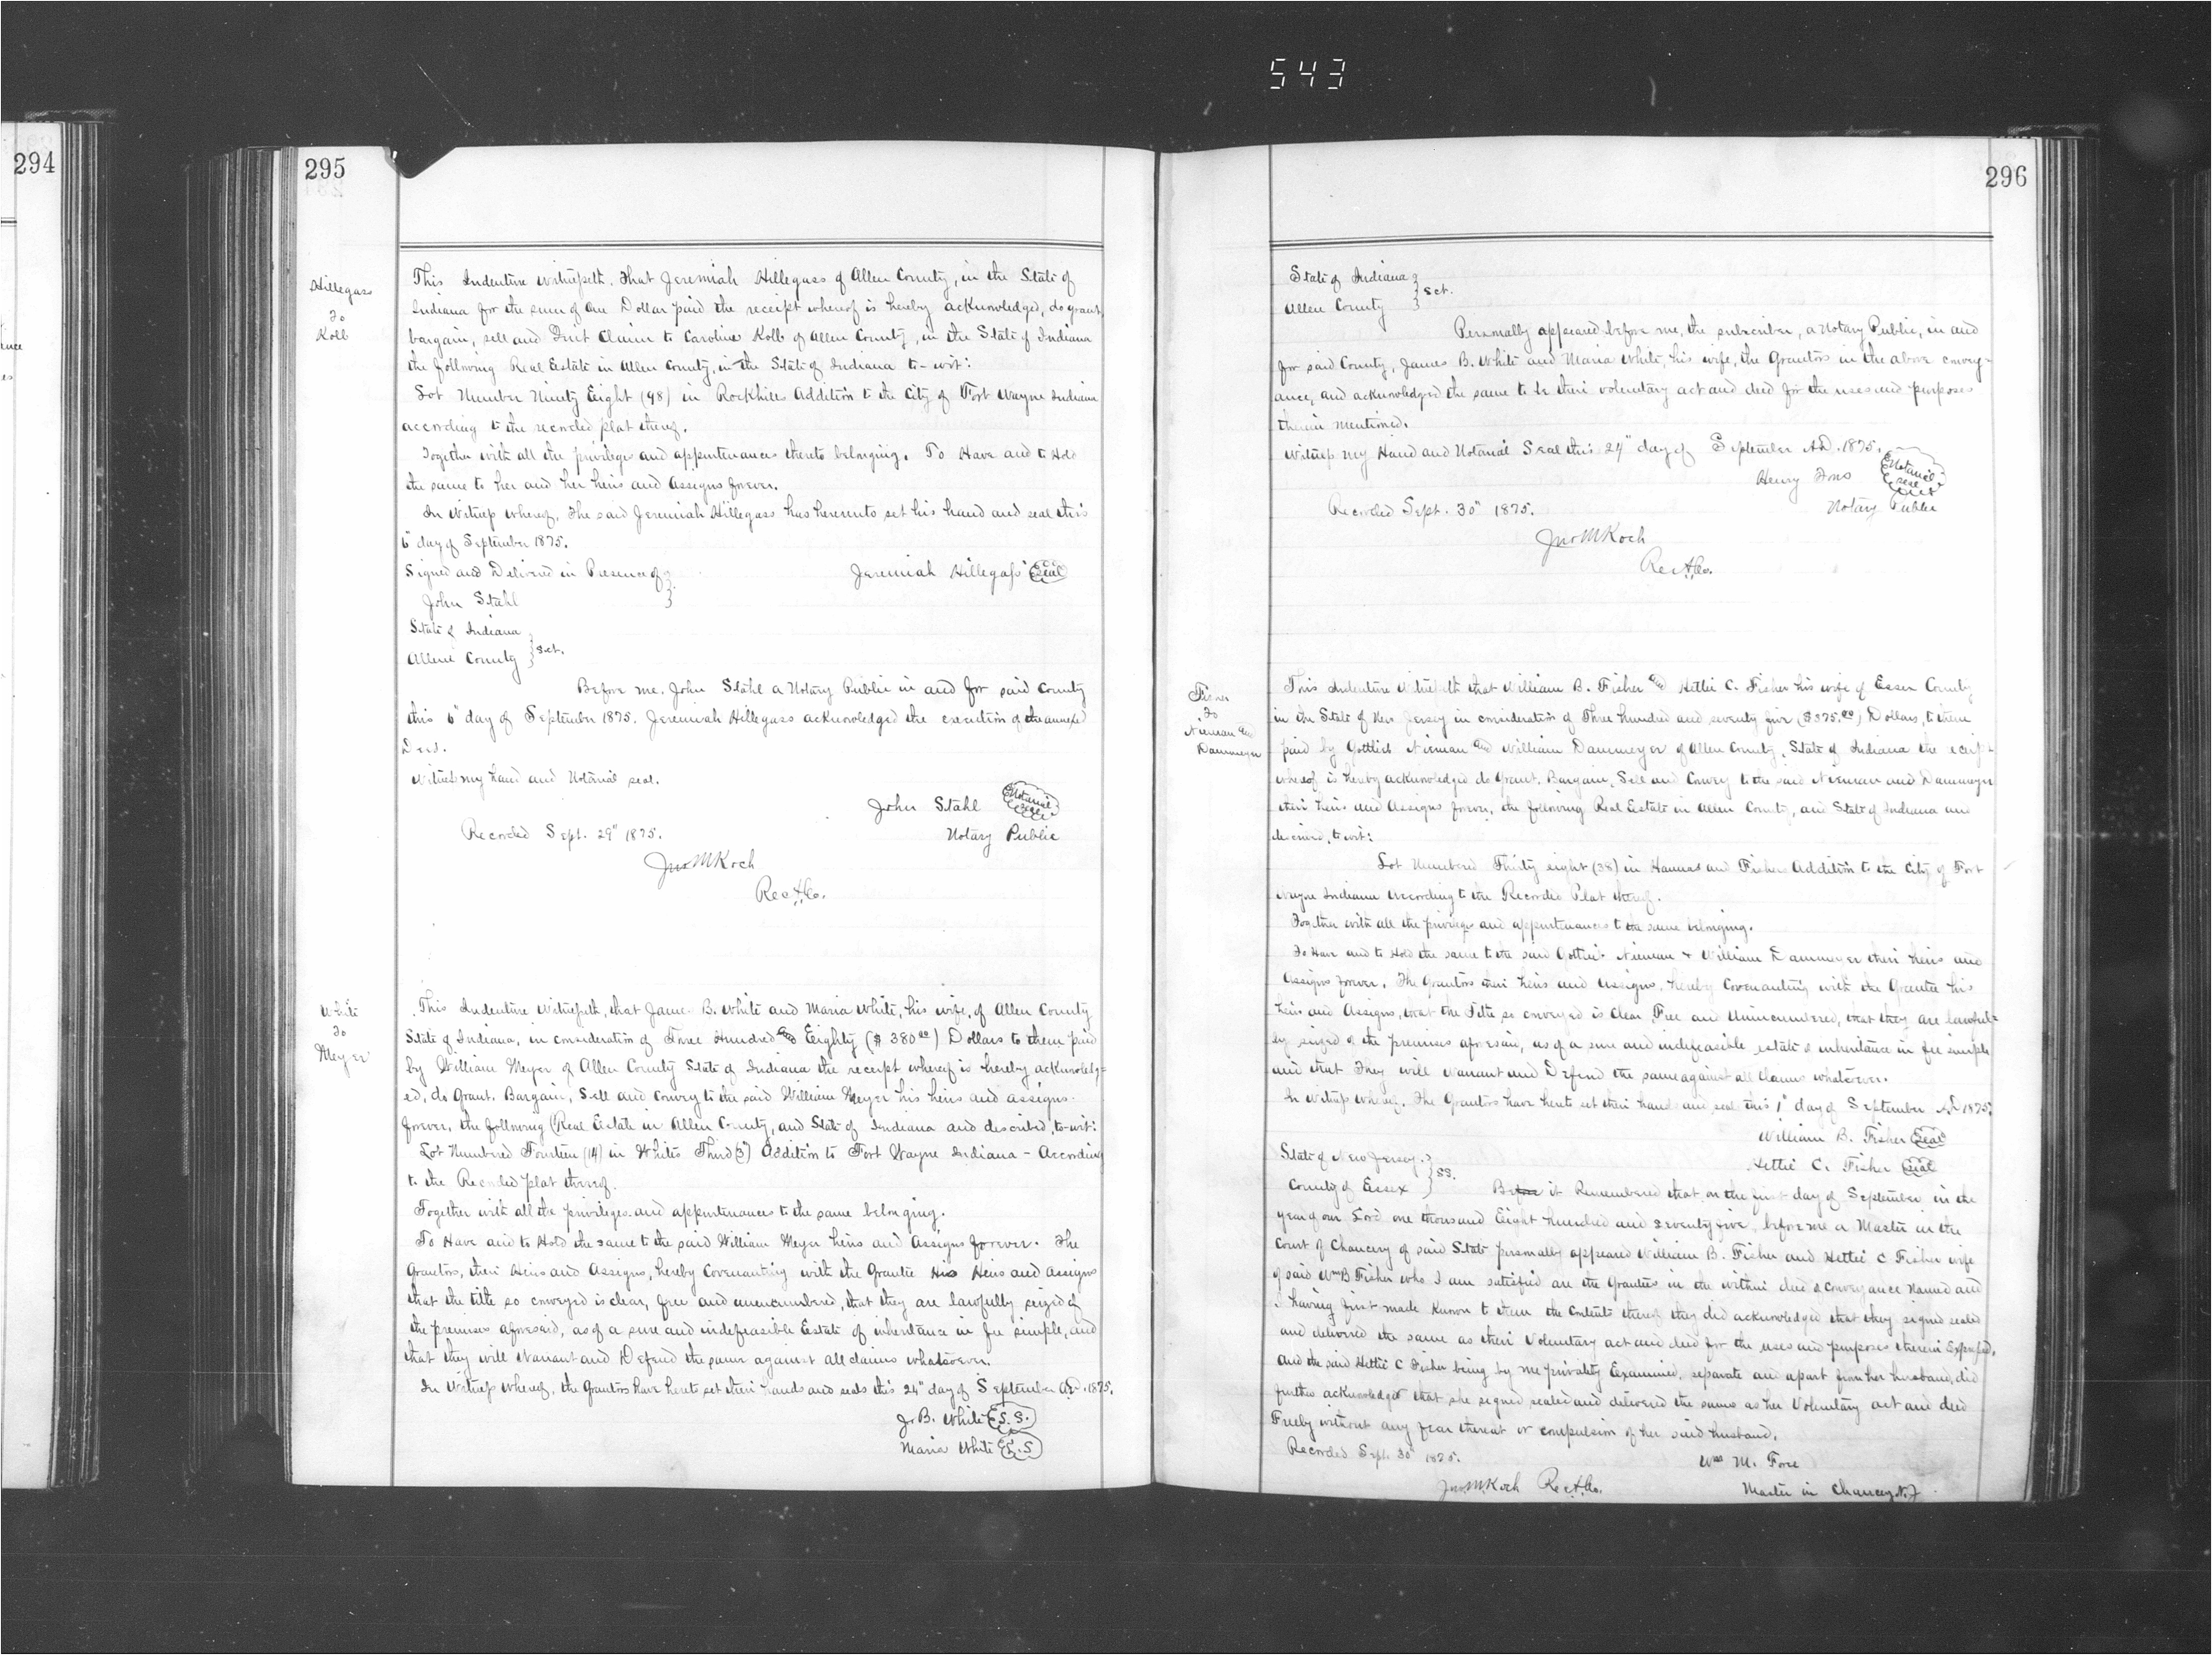 543
294
295
Hillegass
To
Kolb
This Indenture Witnesseth, That Jeremiah Hillegass of Allen County, in the State of
Indiana for the sum of One Dollar paid the receipt whereof is hereby acknowledged, do grant,
bargain, sell and Quit Claim to Caroline Kolb of Allen County, in the State of Indiana
the following Real Estate in Allen County, in the State of Indiana to-wit:
Lot Number Ninety Eight (98) in Rockhills Addition to the City of Fort Wayne Indiana
according to the recorded plat thereof.
Together with all the privileges and appurtenances thereto belonging. To Have and to Hold
the same to her and her heirs and assigns forever.
In Witness whereof, The said Jeremiah Hillegass has hereunto set his hand and seal this
6" day of September 1875.
Signed and Delivered in Presence of } Jeremiah Hillegass Seal
John Stahl
State of Indiana
Allen County } Sct.
Before me, John Stahl a Notary Public in and for said County
this 6" day of September 1875. Jeremiah Hillegass acknowledged the execution of the annexed
Deed.
Witness my hand and Notarial seal.
John Stahl Notarial seal
Recorded Sept. 29" 1875. Notary Public
Jno M Koch
Rec A. Co.
White
To
Meyer
This Indenture Witnesseth, that James B. White and Maria White, his wife, of Allen County
State of Indiana, in consideration of Three Hundred and Eighty ($380.00) Dollars to them paid
by William Meyer of Allen County State of Indiana the receipt whereof is hereby acknowledg=
ed, do Grant, Bargain, Sell and Convey to the said William Meyer his heirs and assigns
forever, the following Real Estate in Allen County, and State of Indiana and described, to-wit:
Lot Numbered Fourteen (14) in Whites Third (3") Addition to Fort Wayne Indiana - According
to the Recorded plat thereof.
Together with all the privileges and appurtenances to the same belonging.
To Have and to Hold the same to the said William Meyer heirs and Assigns forever. The
Grantors, their Heirs and Assigns, hereby Covenanting with the Grantee His Heirs and assigns
that the title so conveyed is clear, free and unencumbered, that they are lawfully seized of
the premises aforesaid, as of a sure and indefeasible Estate of inheritance in fee simple, and
that they will Warrant and Defend the same against all claims whatsoever.
In Witness whereof, the Grantors have hereto set their hands and seals this 24" day of September A.D. 1875.
J. B. White
Maria White
296
State of Indiana
Allen County } Sct.
Personally appeared before me, the subscriber, a Notary Public, in and
for said County, James B. White and Maria White, his wife, the Grantors in the above convey=
ance, and acknowledged the same to be their voluntary act and deed for the uses and purposes
therein mentioned.
Witness my Hand and Notarial Seal this 24" day of September A.D. 1875.
Henry Notarial seal
Recorded Sept. 30" 1875. Notary Public
Jno M Koch
Rec A. Co.
Fisher
To
Nieman and
Dammeyer
This Indenture Witnesseth that William B. Fisher and Hettie C. Fisher his wife of Essex County
in the State of New Jersey in consideration of Three hundred and seventy five ($375.00) Dollars, to them
paid by Gottlieb Nieman and William Dammeyer of Allen County, State of Indiana the receipt
whereof is hereby acknowledged do Grant, Bargain, Sell and Convey to the said Nieman and Dammeyer
their heirs and Assigns forever, the following Real Estate in Allen County, and State of Indiana and
described, to wit:
Lot Numbered Thirty eight (38) in Hannas and Fishers Addition to the City of Fort
Wayne Indiana According to the Recorded Plat thereof.
Together with all the privileges and appurtenances to the same belonging.
To Have and to Hold the same to the said Nieman & William Dammeyer their heirs and
Assigns forever. The Grantors their heirs and assigns, hereby Covenanting with the Grantee his
heirs and Assigns, that the Title so conveyed is Clear, Free and Unincumbered, that they are lawful=
ly seized of the premises aforesaid, as of a sure and indefeasible estate of inheritance in fee simple
and that They will Warrant and Defend the same against all claims whatsoever.
In Witness whereof, The Grantors have hereto set their hands and seals this 1" day of September AD 1875.
William B. Fisher Seal
State of New Jersey } Hettie C. Fisher Seal
County of Essex } SS. it Remembered that on the first day of September in the
year of our Lord one thousand Eight hundred and seventy five before me a Master in the
Court of Chancery of said State personally appeared William B. Fisher and Hettie C Fisher wife
of said Wm B Fisher who I am satisfied are the Grantees in the within deed of conveyance named and
I having first made known to them the contents thereof they did acknowledged that they signed sealed
and delivered the same as their Voluntary act and deed for the uses and purposes therein Expressed,
And the said Hettie C Fisher being by me privately Examined, separate and apart from her husband, did
further acknowledged that she signed sealed and delivered the same as her Voluntary act and deed
Freely without any fear threat or compulsion of her said husband.
Recorded Sept. 30" 1875. Wm M.
Jno M Koch Rec A. Co. Master in Chancery N.J